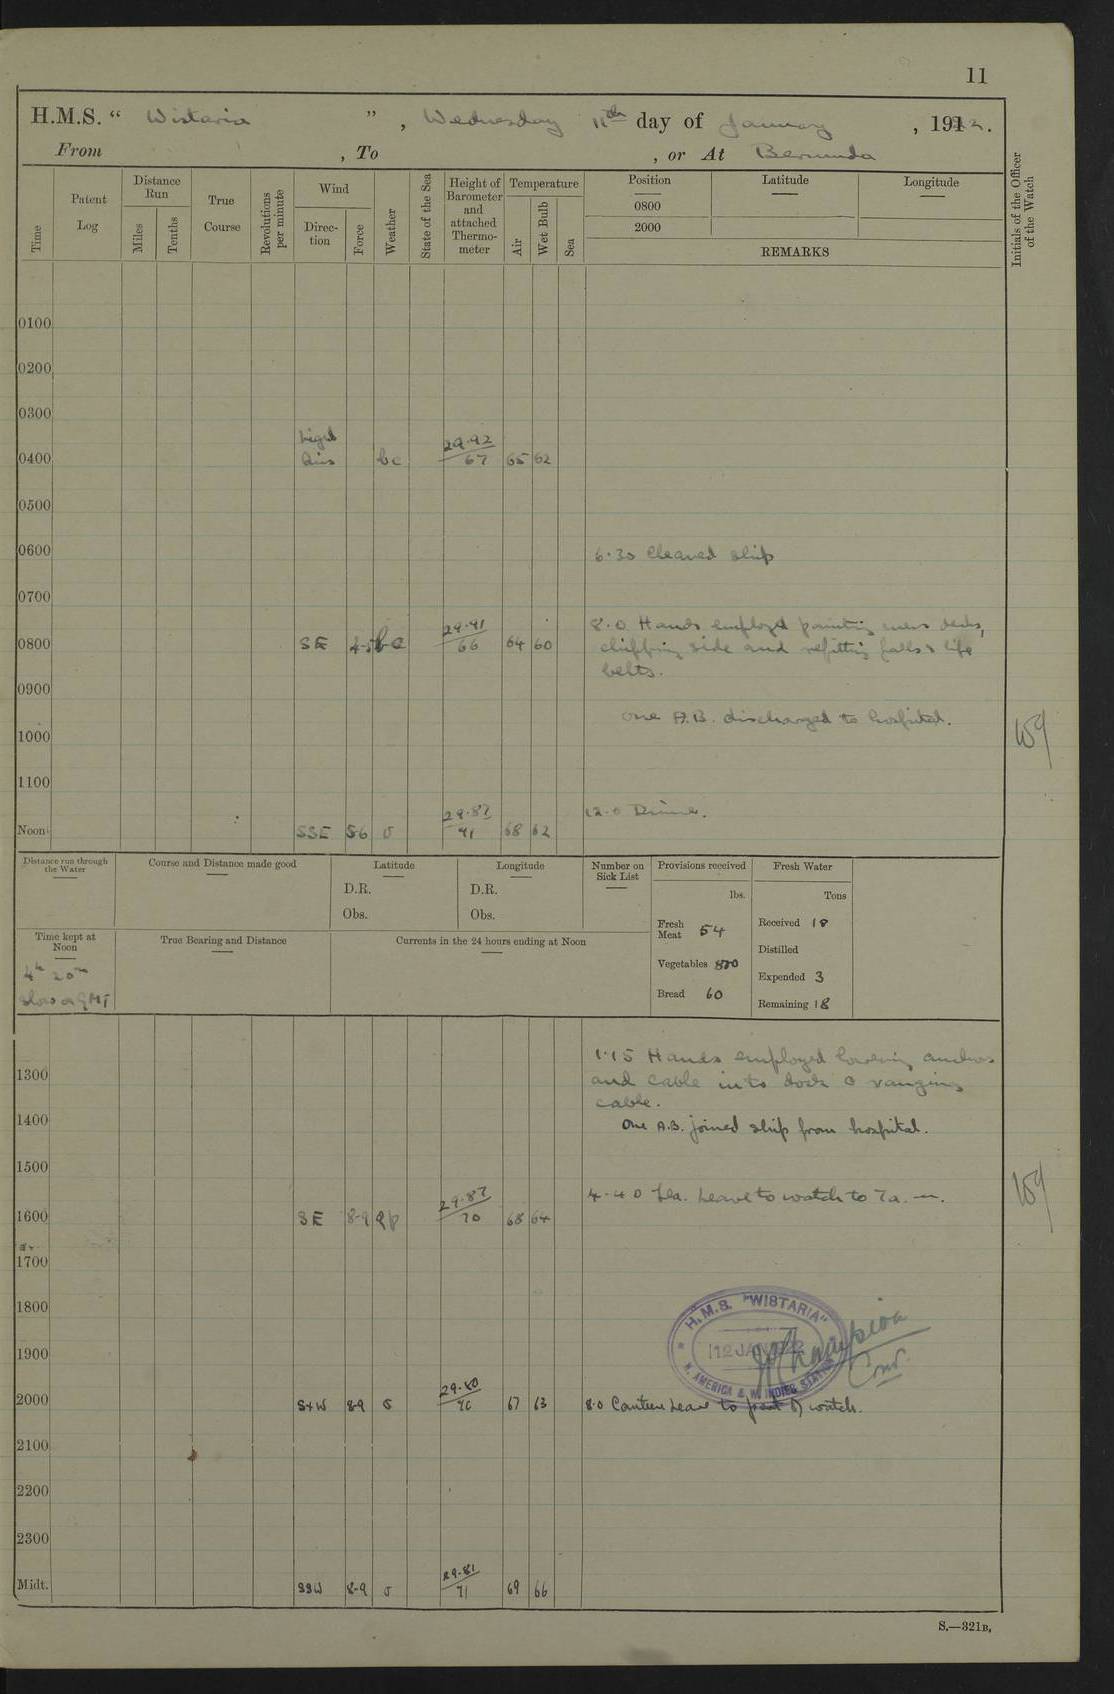 11
H.M.S. “ Wistaria ” , Wednesday 11th day of January , 1922.
From , To , or At Bermuda
Time
Patent Log
Distance Run
Miles
Tenths
True Course
Revolutions per minute
Wind
Direc-tion
Force
Weather
State of the Sea
Height of Barometer and attached Thermo-meter
Temperature
Air
Wet Bulb
Sea
Position
0800
2000
Latitude
Longitude
REMARKS
Initials of the Officer of the Watch
0100
0200
0300
Light
29.92
0400 airs bc 67 65 62
0500
0600 6.30 Cleaned ship
0700
29.91 8.0 Hands employed painting mess decks,
0800 SE 4-5 bc 66 64 60 chipping side and refitting falls & life
belts.
0900
one A.B. discharged to hospital.
1000
1100
29.87 12.0 Dinner.
Noon SSE 5-6 o 71 68 62
Distance run through the Water
Course and Distance made good
Latitude
D.R.
Obs.
Longitude
D.R.
Obs.
Number on Sick List
Provisions received
lbs.
Fresh Meat 54
Vegetables
Bread 60
Fresh Water
Tons
Received 18
Distilled
Expended 3
Remaining 18
Time kept at Noon
4h 20m
slow on GMT
True Bearing and Distance
Currents in the 24 hours ending at Noon
1.15 Hands employed lowering anchors
1300 and cable into dock & ranging
cable.
1400 One A.B. joined ship from hospital.
1500
29.87 4.40 Lea. Leave to watch to 7 a.m.
1600 SE 8-9 qp 70 68 64
1700
1800
H.M.S. "WISTARIA"
12 JAN 1922
N. AMERICA & W. INDIES STATION
Champion
Comr.
1900
29.80
2000 SxW 8-9 o 70 67 63 8.0 Canteen Leave to part of watch.
2100
2200
2300
29.81
Midt. SSW 8-9 o 71 69 66
S.—321B.